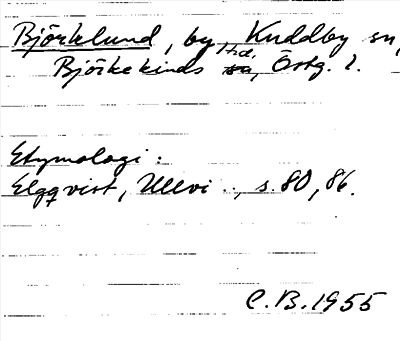 Björklund, by, Kuddby sn,
Björkekinds hd., Östg. l.
Etymologi:
Elgqvist, Ullvi.., s. 80, 86.
C.B. 1955